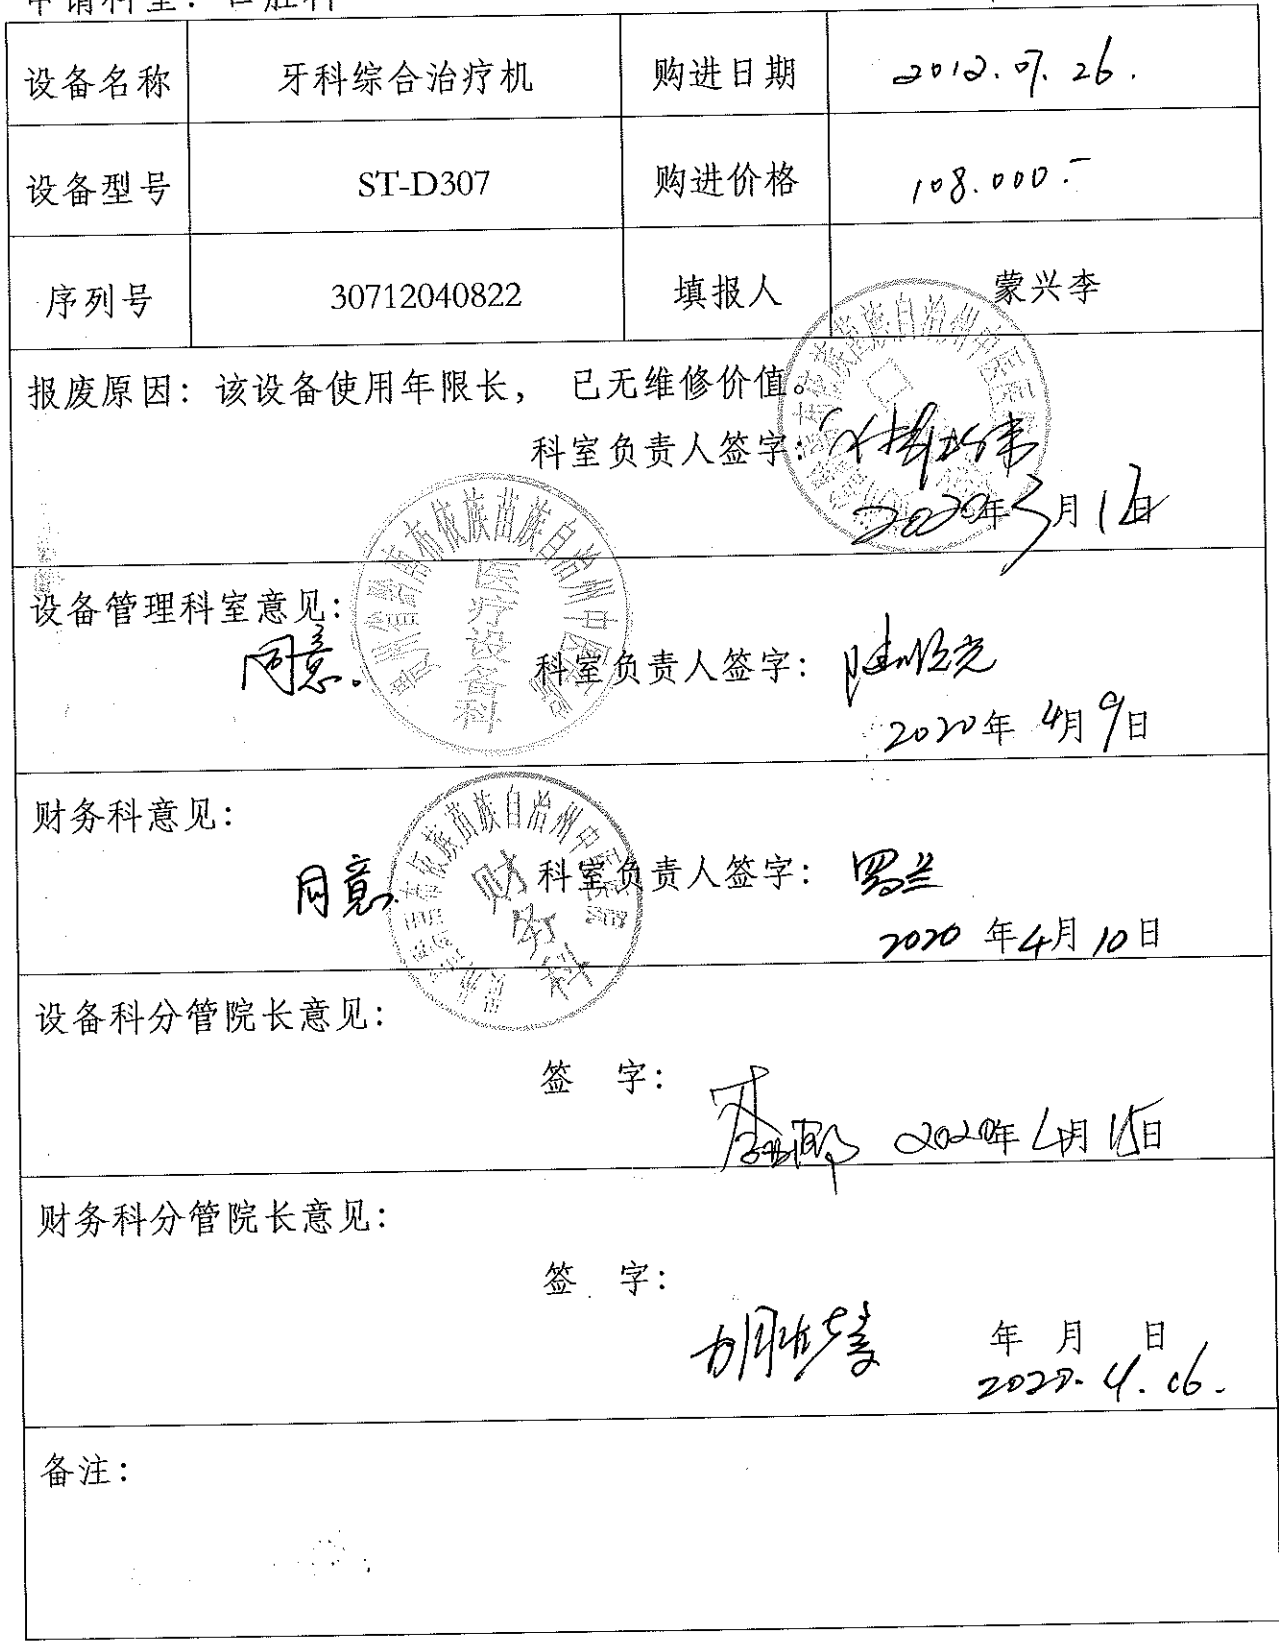 申请科室：口腔科
设备名称 牙科综合治疗机 购进日期 2012.07.26.
设备型号 ST-D307 购进价格 108.000.-
序列号 30712040822 填报人 蒙兴李
报废原因：该设备使用年限长， 已无维修价值。
科室负责人签字：
2020年3月12日
设备管理科室意见：
同意。 科室负责人签字：
2020年 4月 9日
医疗设备科
财务科意见：
同意 科室负责人签字： 罗兰
2020 年 4月 10日
财务科
设备科分管院长意见：
签 字：
2020年 4月 15日
财务科分管院长意见：
签 字：
年 月 日
2020.4.16.
备注：